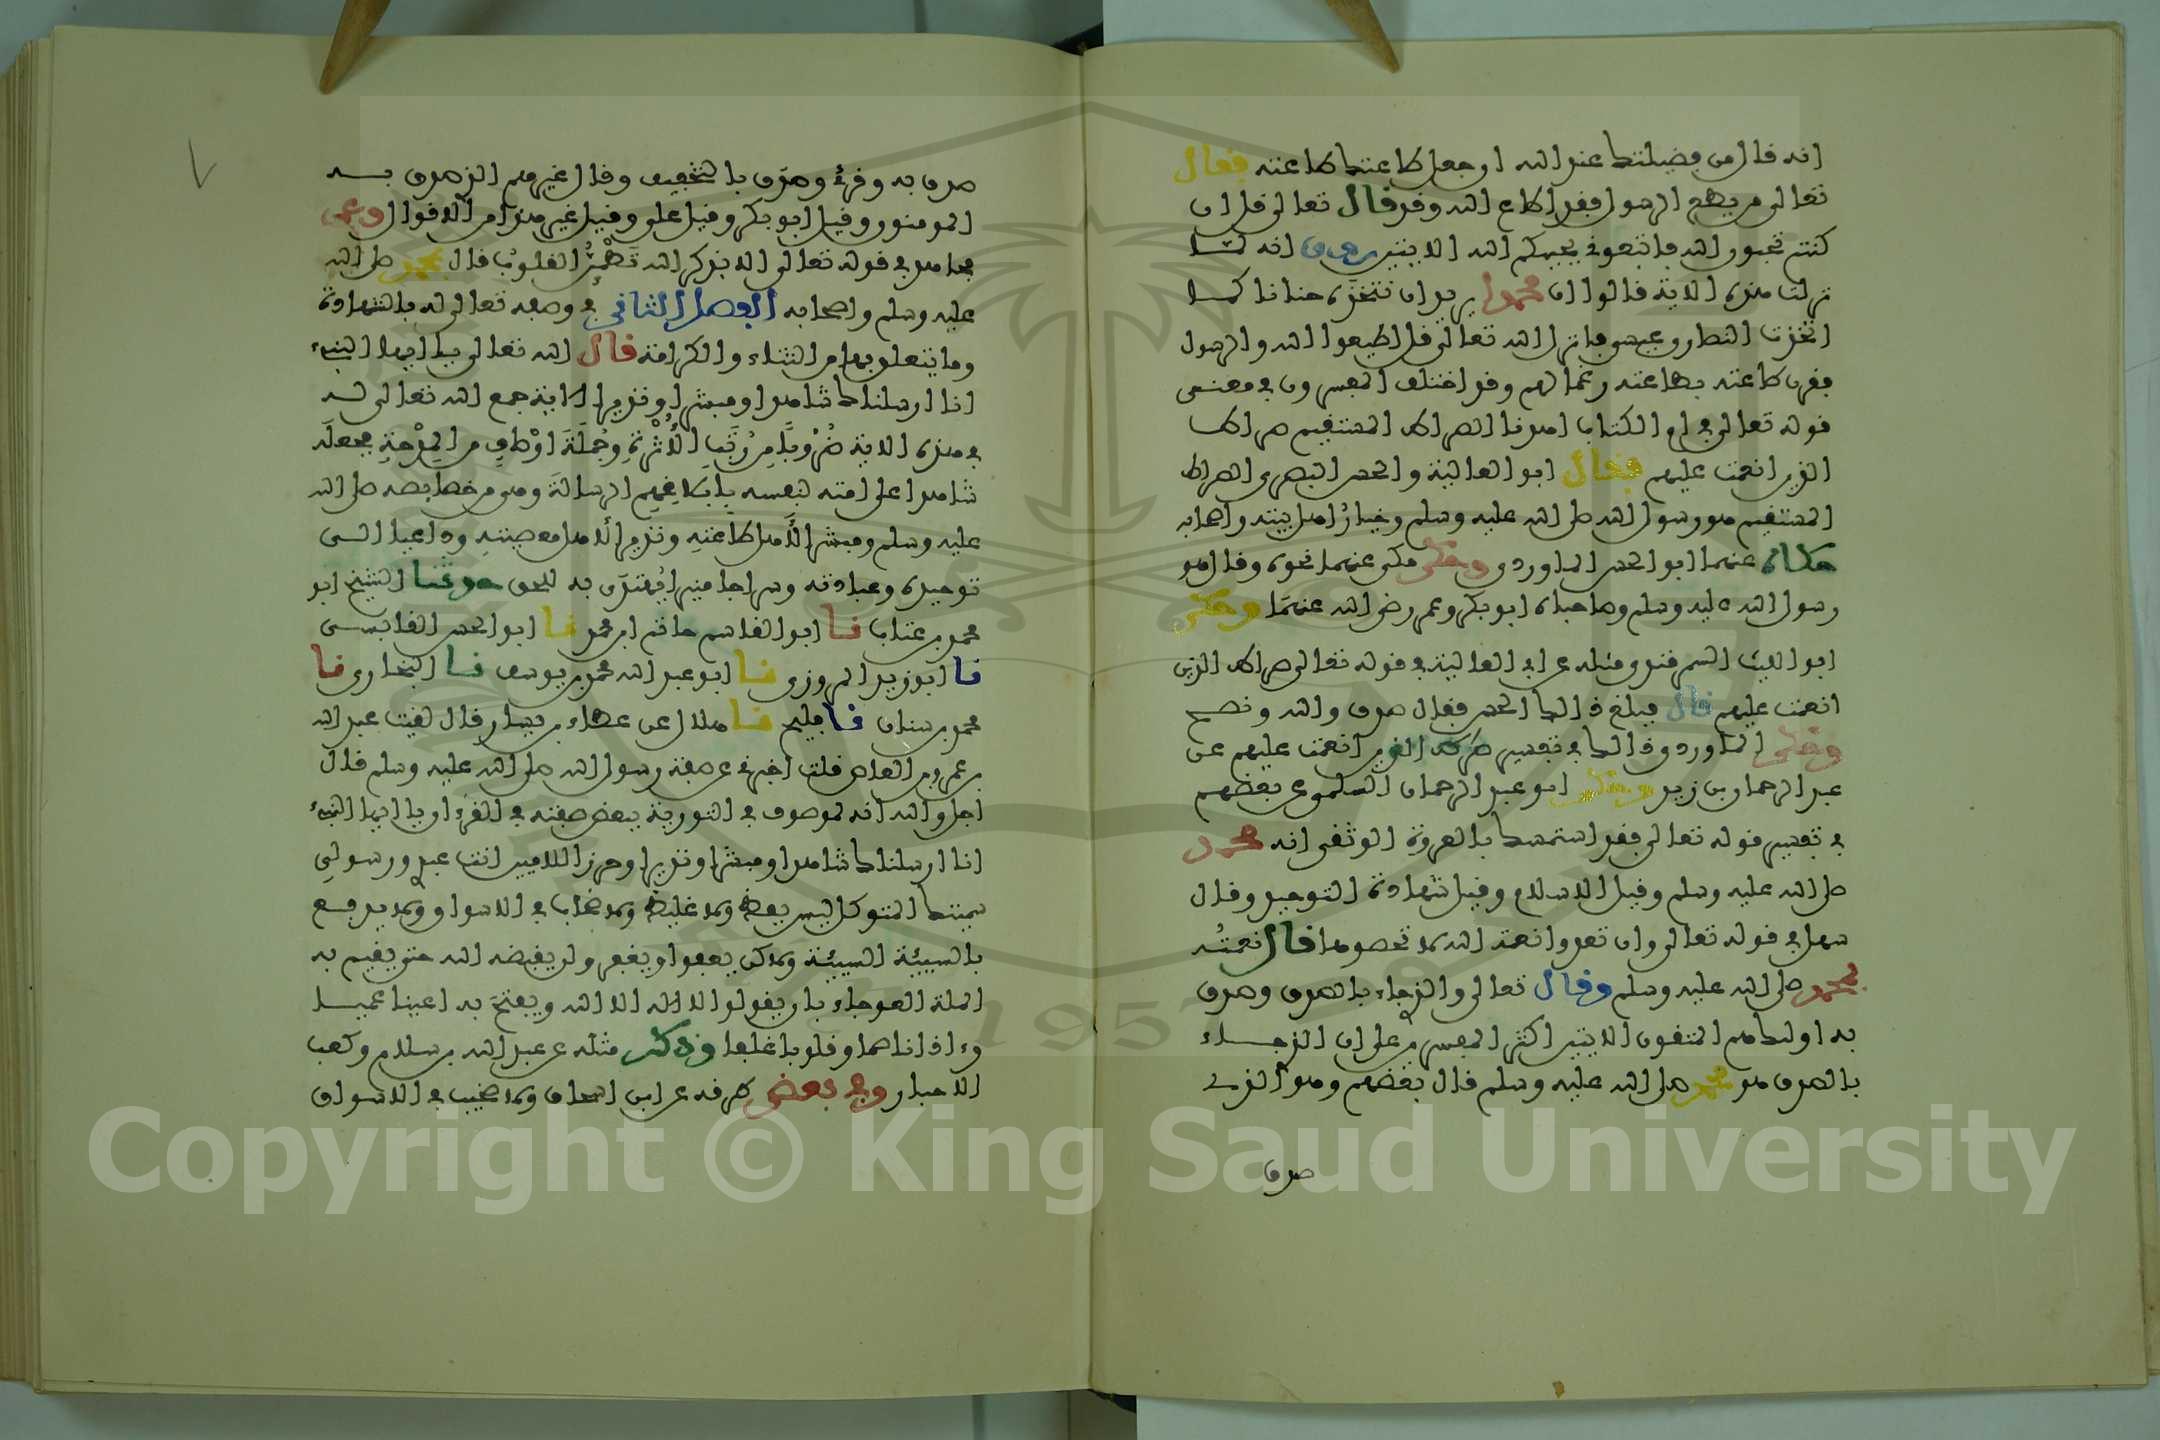 انه قال من فضيلتك عند الله ان جعل طاعتك طاعته فقال
تعالى من يطع الرسول فقد اطاع الله وقد قال تعالى قل ان
كنتم تحبون الله فاتبعونى يحببكم الله الايتين روى انه لمــا
نزلت هذه الاية قالوا ان محمدا يريد ان نتخذه حنانا كمــا
اتخذت النصارى عيسى فانزل الله تعالى قل اطيعوا الله والرسول
فقرن طاعته بطاعته رغما لهم وقد اختلف المفسرون في معنــى
قوله تعالى في ام الكتاب اهدنا الصراط المستقيم صراط
الذين انعمت عليهم فقال ابو العالية والحسن البصري الصراط
المستقيم هو رسول الله صلى الله عليه وسلم وخيار اهل بيته واصحابه
حكاه عنهما ابو الحسن الماوردي وحكى مكي عنهما نحوه وقال هو
رسول الله صلى الله عليه وسلم وصاحباه ابو بكر وعمر رضي الله عنهما وحكى
ابو الليث السمرقندي مثله عن ابي العالية في قوله تعالى صراط الذين
انعمت عليهم قال فبلغ ذالك الحسن فقال صدق والله ونصح
وحكى الماوردي ذالك في تفسير صراط الذين انعمت عليهم عن
عبد الرحمان بن زيد وحكى ابو عبد الرحمان السلمي عن بعضهم
في تفسير قوله تعالى فقد استمسك بالعروة الوثقى انه محمد
صلى الله عليه وسلم وقيل الاسلام وقيل شهادة التوحيد وقال
سهل في قوله تعالى وان تعدوا نعمة الله لا تحصوها قال نعمته
بمحمد صلى الله عليه وسلم وقال تعالى والذي جاء بالصدق وصدق
به اولئك هم المتقون الايتين اكثر المفسرين على ان الذي جــاء
بالصدق هو محمد صلى الله عليه وسلم قال بعضهم وهو الذي
صدق
صدق به وقرئ وصدق بالتخفيف وقال غيرهم الذي صدق بــه
المومنون وقيل ابو بكر وقيل علي وقيل غير هذا من الاقوال وعن
مجاهد في قوله تعالى الا بذكر الله تطمئن القلوب قال بمحمد صلى الله
عليه وسلم واصحابه الفصل الثاني في وصفه تعالى له بالشهادة
وما يتعلق بها من الثناء والكرامة قال الله تعالى يا ايها النبيء
انا ارسلناك شاهدا ومبشرا ونذيرا الاية جمع الله تعالى له
في هذه الاية ضروبا من رتب الاثرة وجملة اوصاف من المدحة فجعله
شاهدا على امته لنفسه بابلاغهم الرسالة وهي من خصائصه صلى الله
عليه وسلم ومبشرا لاهل طاعته ونذيرا لاهل معصيته وداعيا الــى
توحيده وعبادته وسراجا منيرا يهتدى به للحق حدثنا الشيخ ابو
محمد بن عتاب نا ابو القاسم حاتم بن محمد نا ابو الحسن القابســى
نا ابو زيد المروزي نا ابو عبد الله محمد بن يوسف نا البخاري نا
محمد بن سنان نا فليح نا هلال عن عطاء بن يسار قال لقيت عبد الله
بن عمرو بن العاص فقلت اخبرني عن صفة رسول الله صلى الله عليه وسلم قال
اجل والله انه لموصوف في التورية ببعض صفته في القرءان يا ايها النبيء
انا ارسلناك شاهدا ومبشرا ونذيرا وحرزا للاميين انت عبدي ورسولي
سميتك المتوكل ليس بفظ ولا غليظ ولا صخاب في الاسواق ولا يدفــع
بالسيئة السيئة ولاكن يعفوا ويغفر ولن يقبضه الله حتى يقيم به
الملة العوجاء بان يقولوا لا اله الا الله ويفتح به اعينا عميــا
وءاذانا صما وقلوبا غلفا وذكر مثله عن عبد الله بن سلام وكعب
الاحبار وفي بعض طرقه عن ابن اسحاق ولا صخب في الاسواق
Copyright © King Saud University
1957